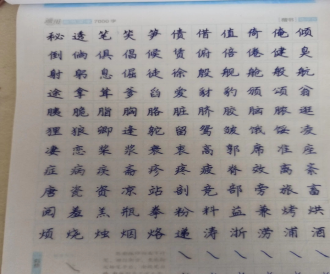 秘 透 笔 笑 笋 债 借 值 倚 俺 倾
倒 倘 俱 倡 候 赁 俯 倍 倦 健 臭
射 躬 息 倔 徒 徐 殷 舰 舱 般 航
途 拿 耸 爹 舀 爱 豺 豹 颁 颂 翁
胰 脆 脂 胸 胳 脏 脐 胶 脑 脓 逛
狸 狼 卿 逢 鸵 留 鸳 皱 饿 馁 凌
凄 恋 桨 浆 衰 衷 高 郭 席 准 座
症 病 疾 斋 疹 疼 疲 脊 效 离 紊
唐 瓷 资 凉 站 剖 竞 部 旁 旅 畜
阅 羞 羔 瓶 拳 粉 料 益 兼 烤 烘
烦 烧 烛 烟 烙 递 涛 浙 涝 浦 酒